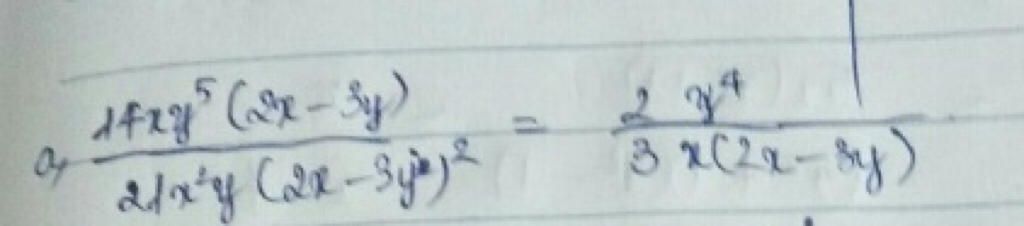 a, \frac{14xy^5(2x-3y)}{21x^2y(2x-3y)^2} = \frac{2y^4}{3x(2x-3y)}